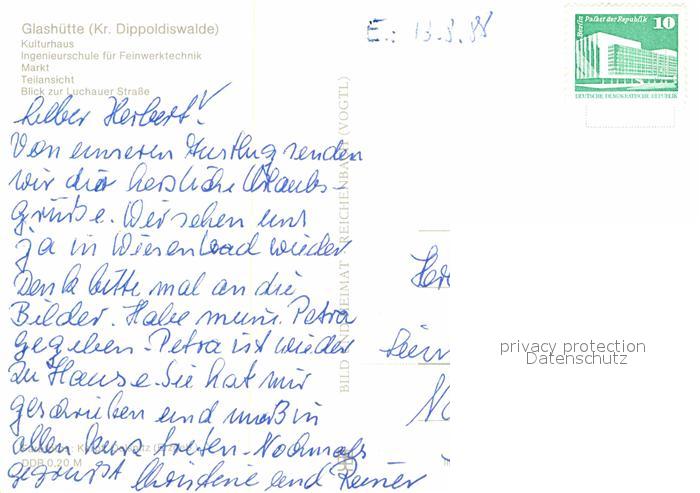 Glashütte (Kr. Dippoldiswalde)
Kulturhaus
Ingenieurschule für Feinwerktechnik
Markt
Teilansicht
Blick zur Luchauer Straße
E.: 13.8.88
Berlin Palast der Republik 10
DEUTSCHE DEMOKRATISCHE REPUBLIK
Lieber Herbert!
Von unseren Ausflug senden
wir dir herzliche Urlaubs-
grüße. Wir sehen uns
ja in Wiesenbad wieder
Denk bitte mal an die
Bilder. Habe meine Petra
gegeben. Petra ist wieder
zu Hause. Sie hat mir
geschrieben und muß in
allen kurz treten. Nochmals
gegrüßt Christine und Rainer
BILD UND HEIMAT REICHENBACH (VOGTL)
Her
privacy protection
Datenschutz
DDR 0,20 M